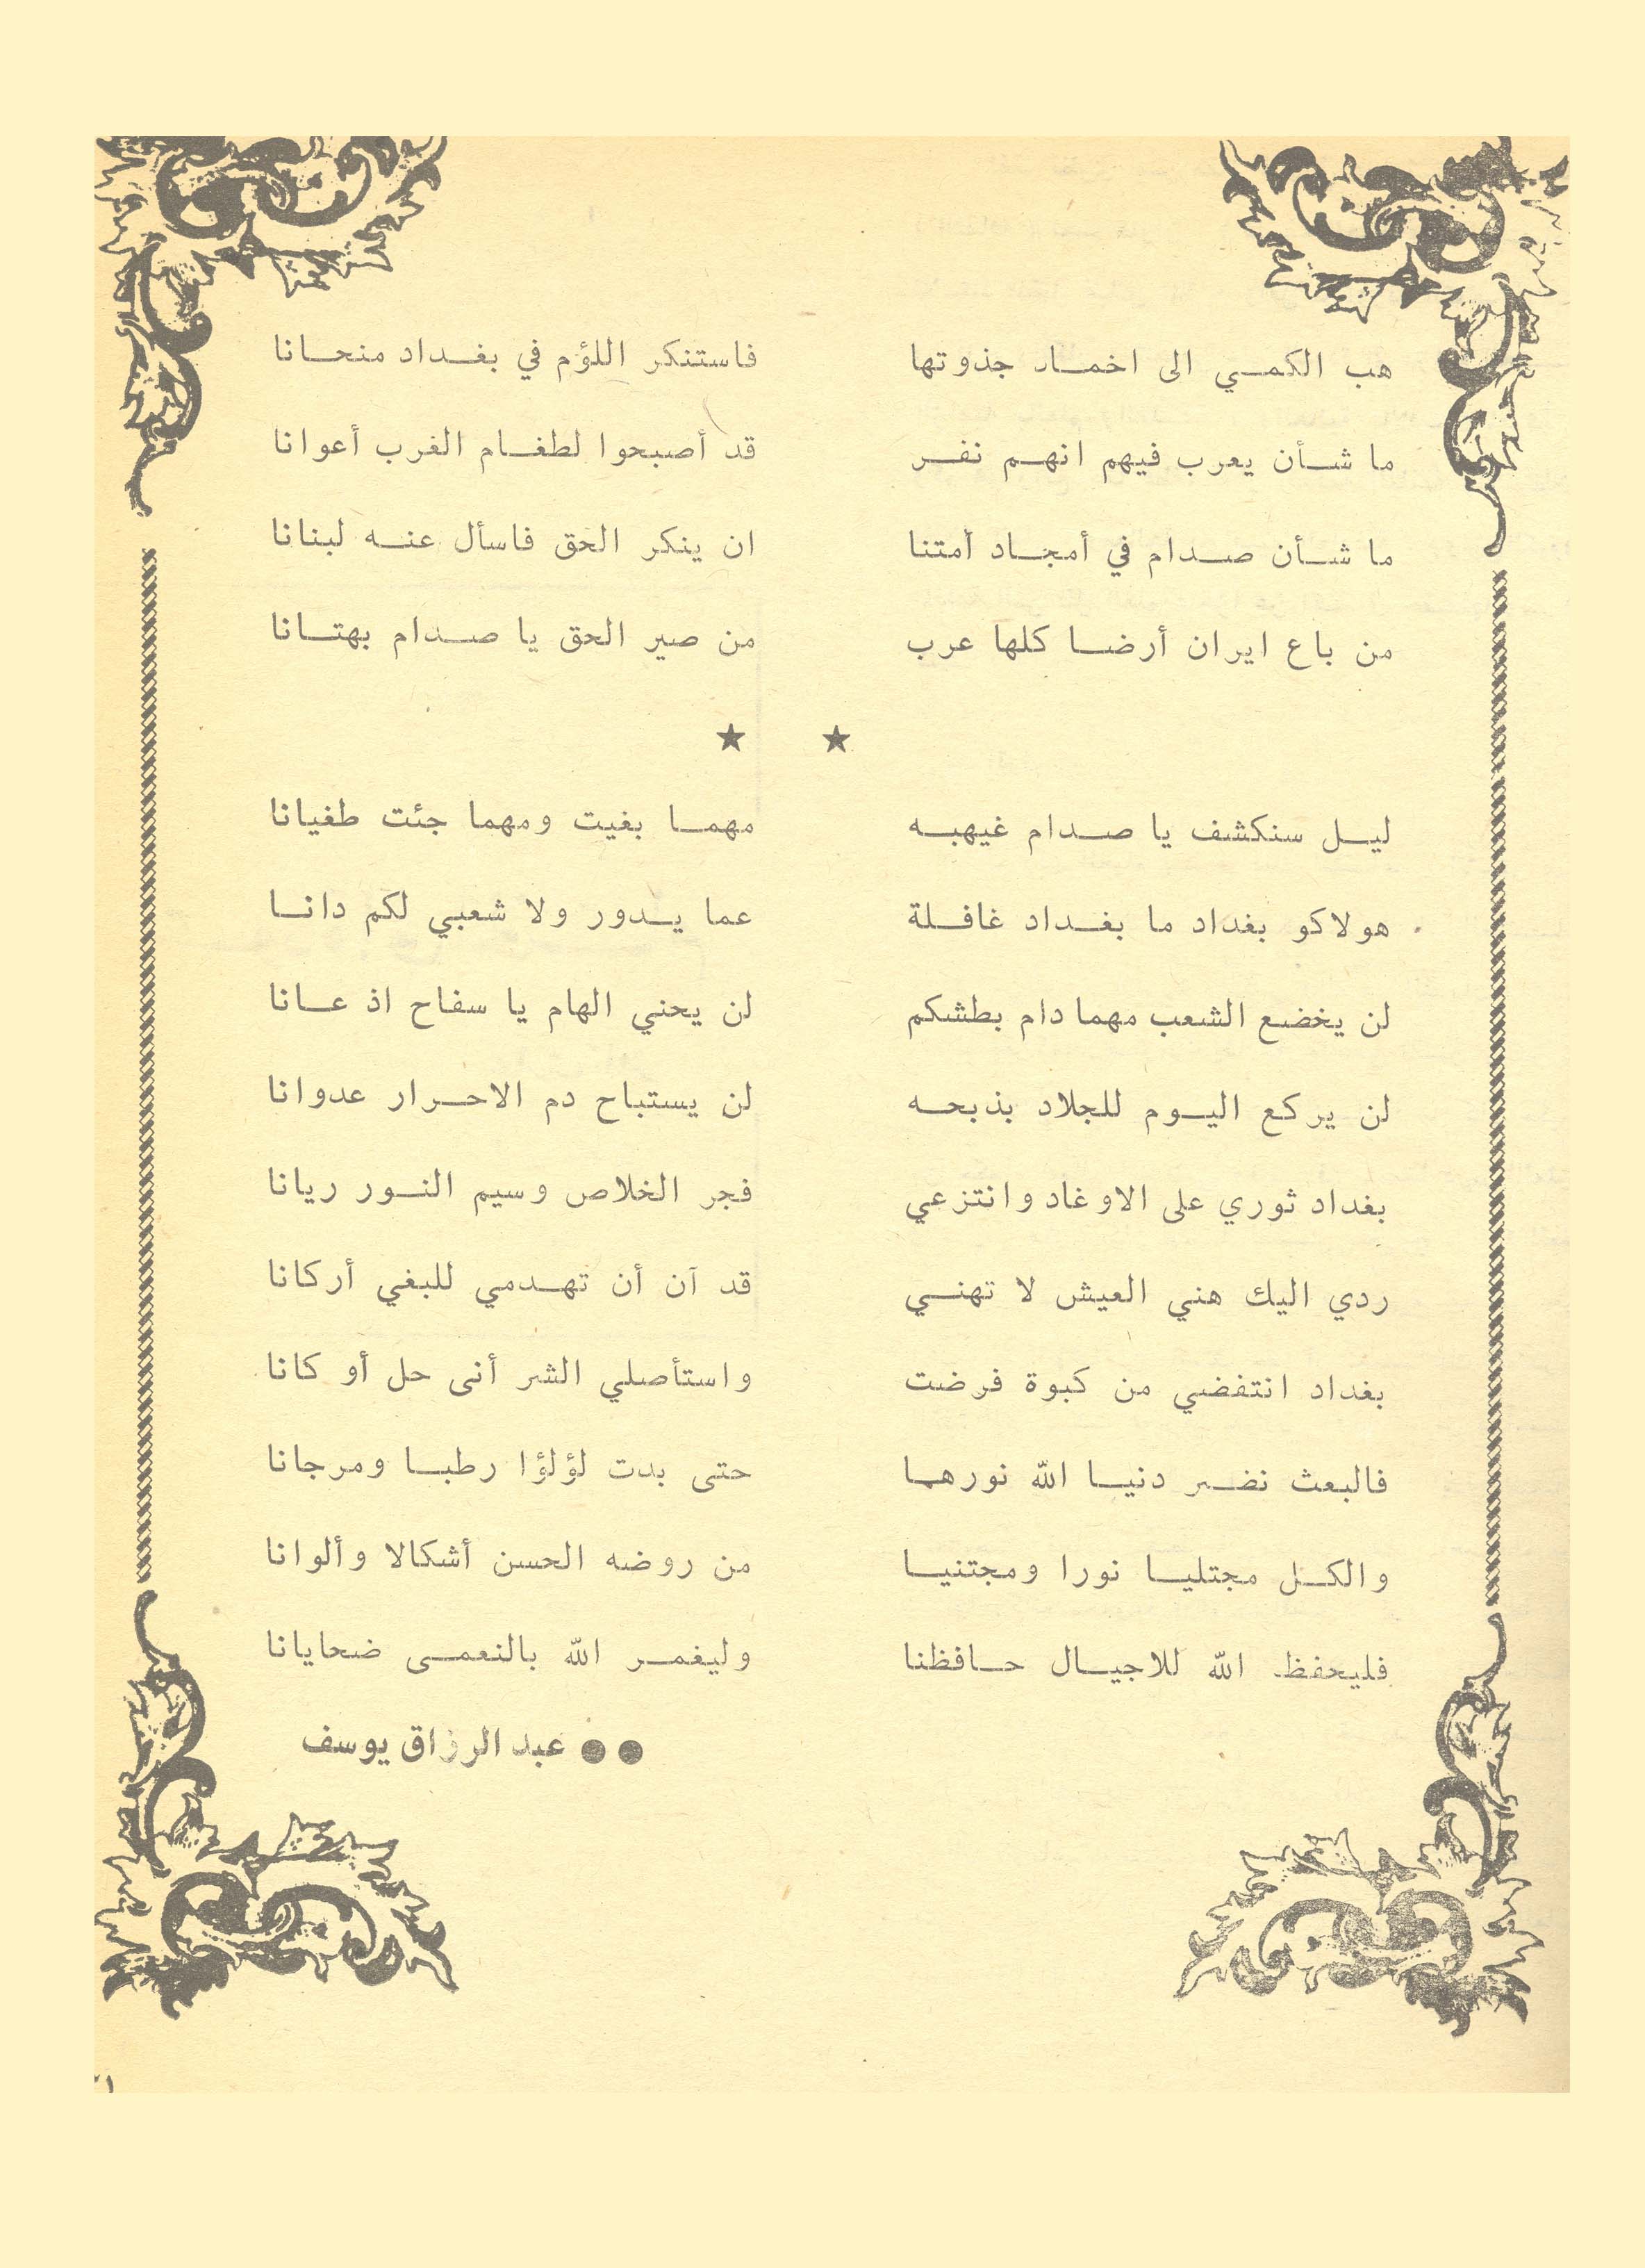 هب الكمي الى اخماد جذوتها فاستنكر اللؤم في بغداد منحانا
ما شأن يعرب فيهم انهم نفر قد أصبحوا لطغام الغرب أعوانا
ما شأن صدام في أمجاد أمتنا ان ينكر الحق فاسأل عنه لبنانا
من باع ايران أرضا كلها عرب من صير الحق يا صدام بهتانا
★ ★
ليل سنكشف يا صدام غيهبه مهما بغيت ومهما جئت طغيانا
هولاكو بغداد ما بغداد غافلة عما يدور ولا شعبي لكم دانا
لن يخضع الشعب مهما دام بطشكم لن يحني الهام يا سفاح اذ عانا
لن يركع اليوم للجلاد بذبحه لن يستباح دم الاحرار عدوانا
بغداد ثوري على الاوغاد وانتزعي فجر الخلاص وسيم النور ريانا
ردي اليك هني العيش لا تهني قد آن أن تهدمي للبغي أركانا
بغداد انتفضي من كبوة فرضت واستأصلي الشر أنى حل أو كانا
فالبعث نضر دنيا الله نورها حتى بدت لؤلؤا رطبا ومرجانا
والكل مجتليا نورا ومجتنيا من روضه الحسن أشكالا وألوانا
فليحفظ الله للاجيال حافظنا وليغمر الله بالنعمى ضحايانا
●● عبد الرزاق يوسف